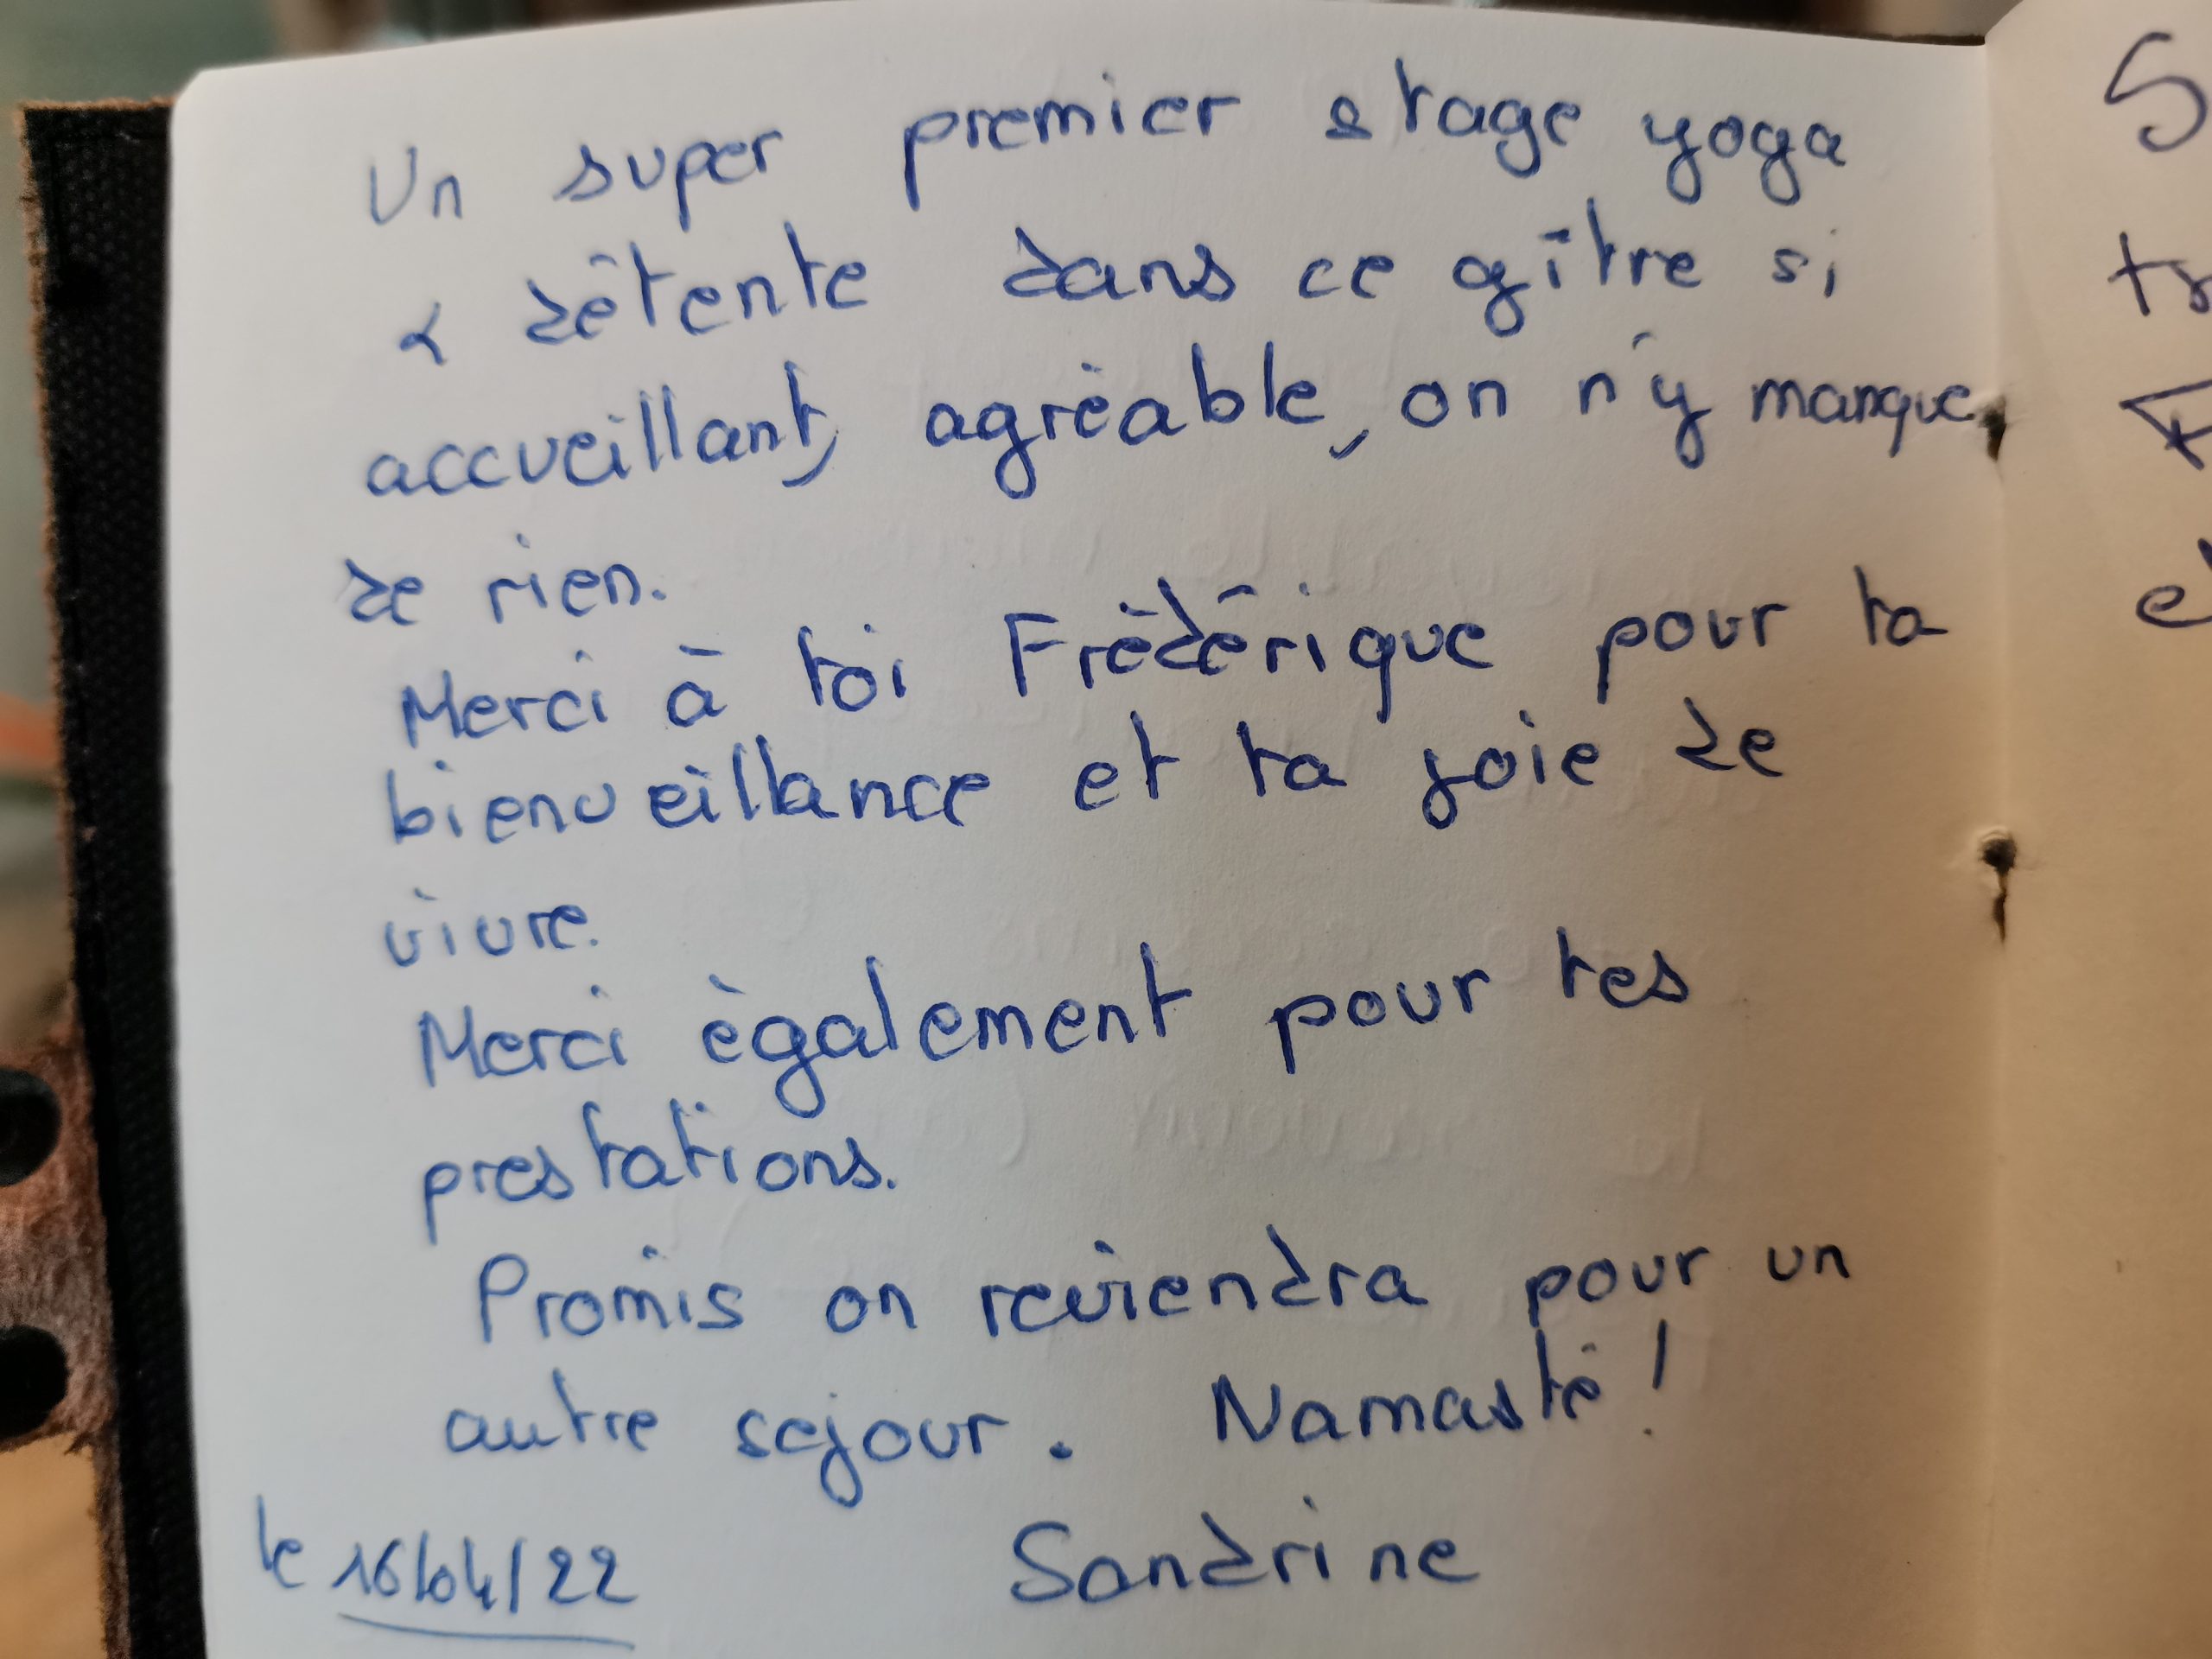 Un super premier stage yoga
& détente dans ce gître si
accueillant, agréable, on n'y manque
de rien.
Merci à toi Frédérique pour ta
bienveillance et ta joie de
vivre.
Merci également pour tes
prestations.
Promis on reviendra pour un
autre sejour. Namasté !
le 16/04/22 Sandrine